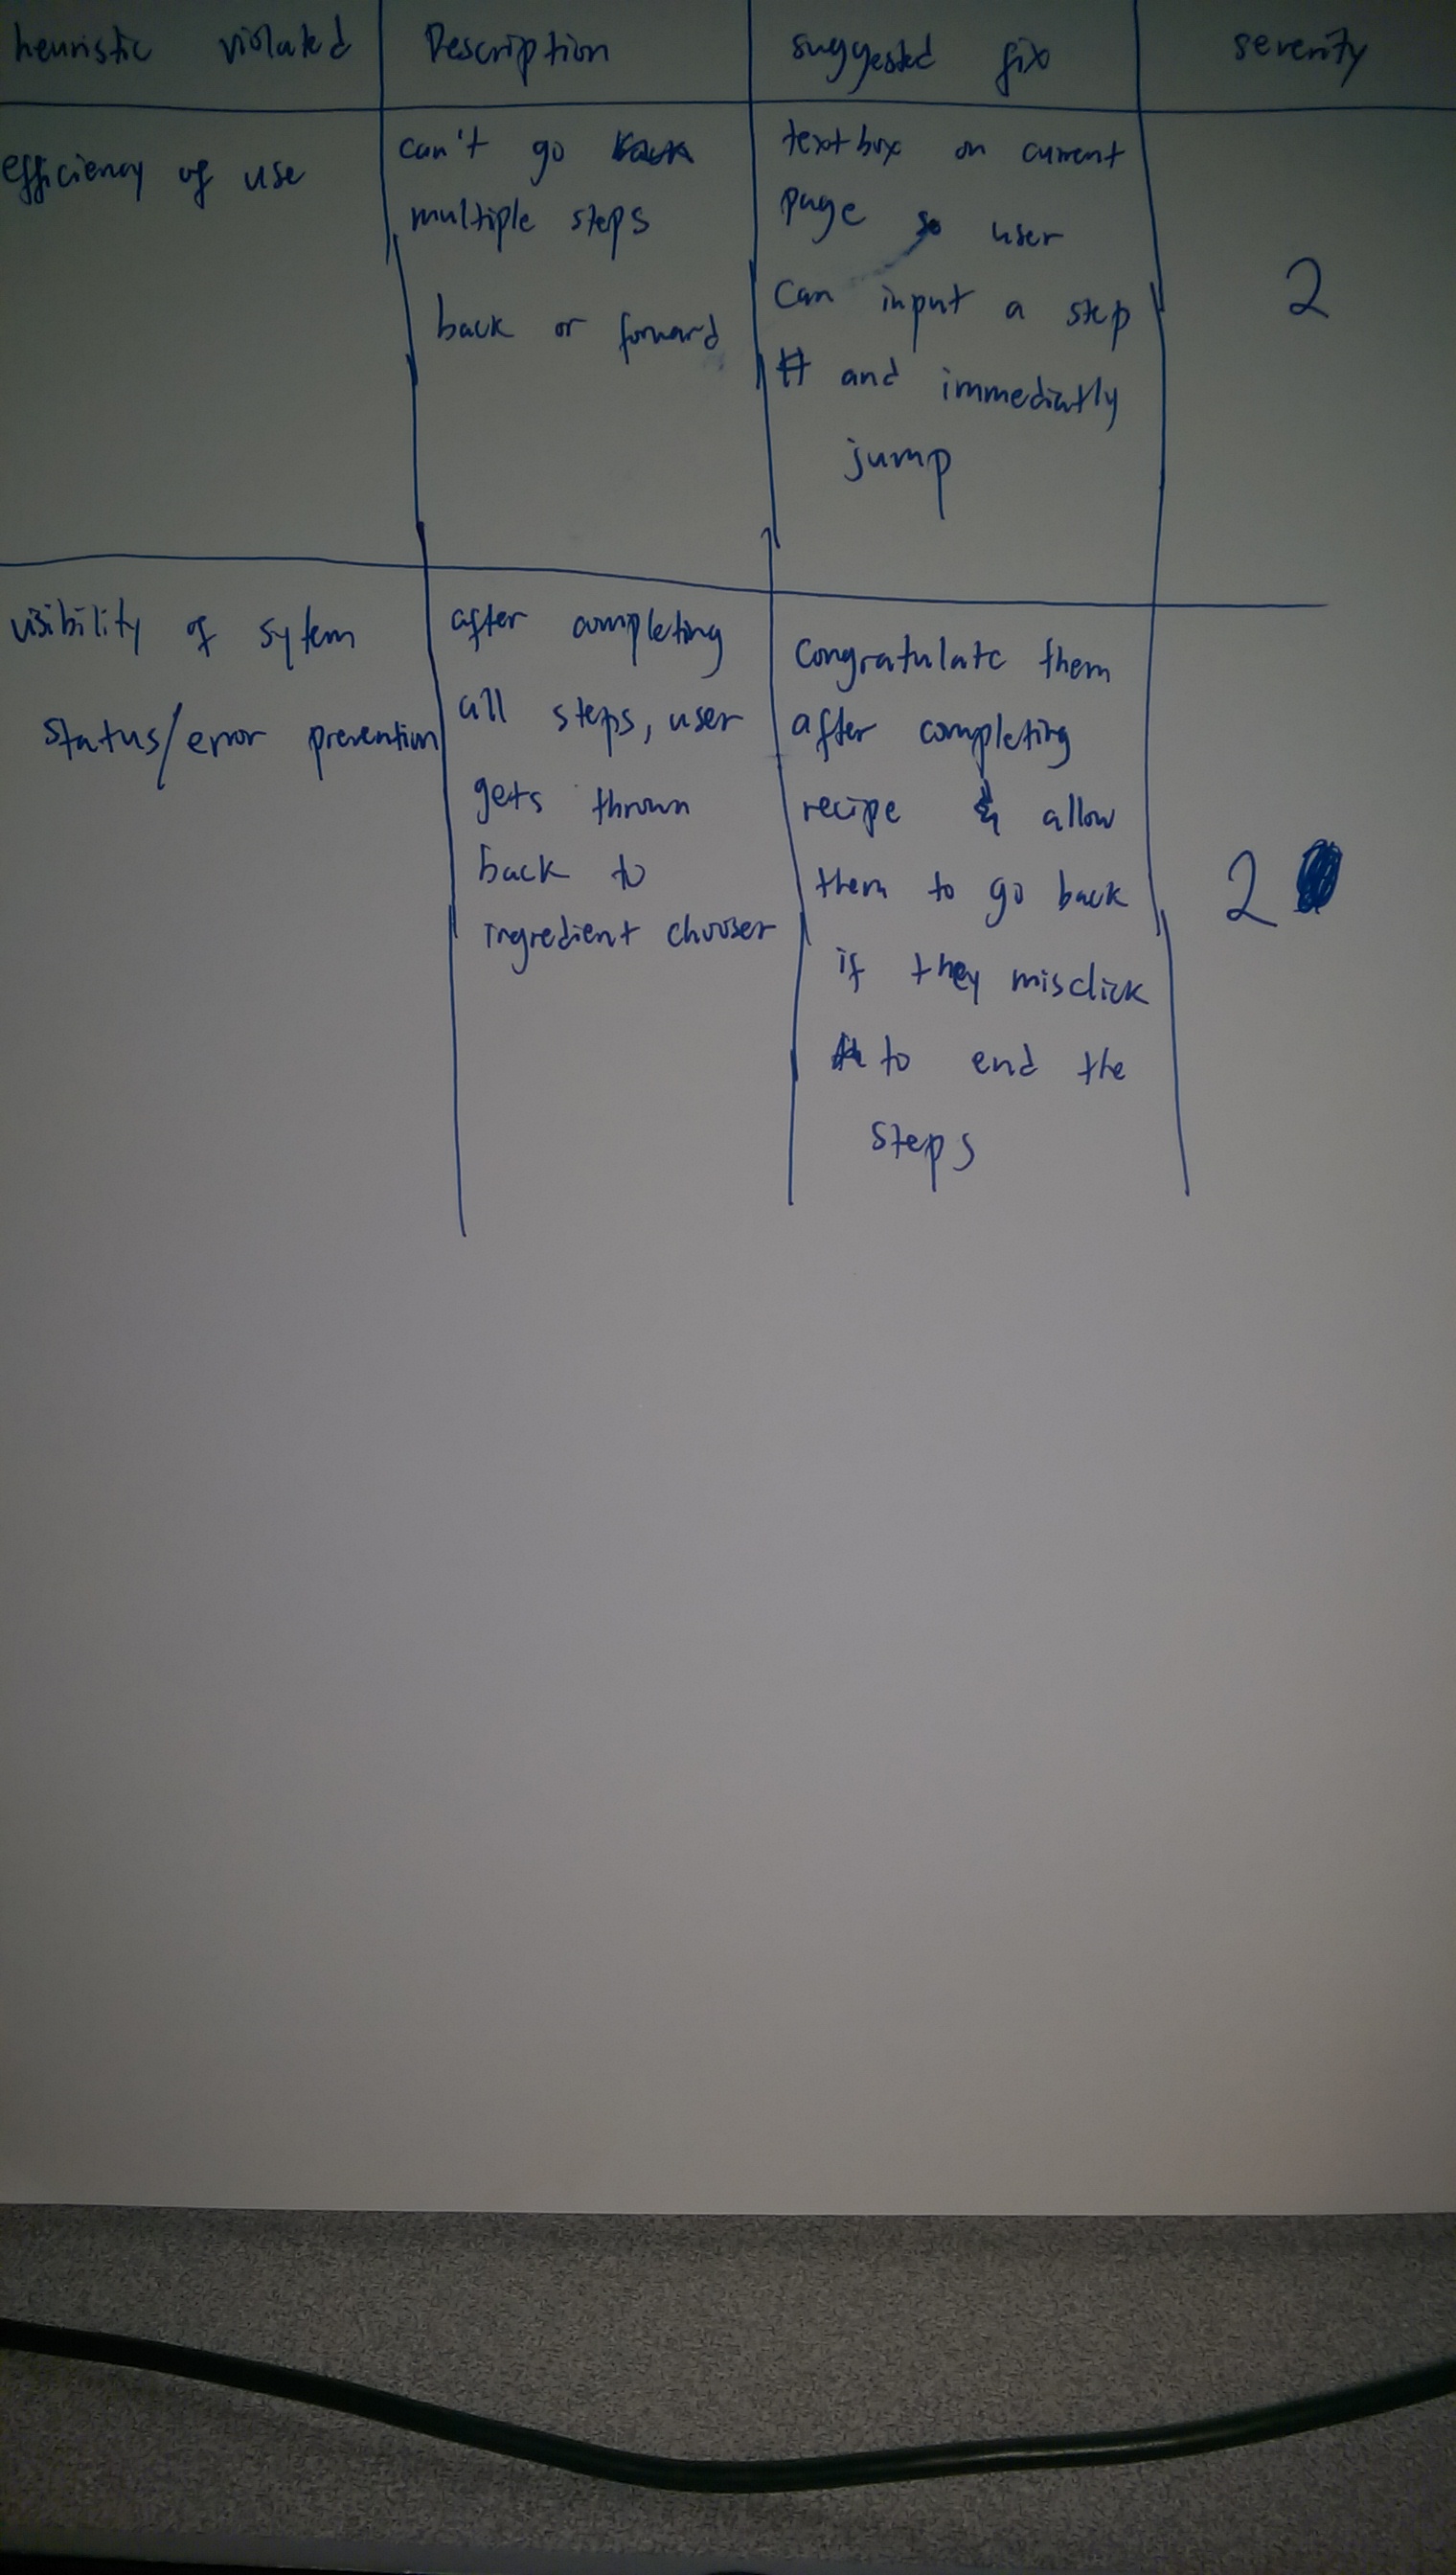 heuristic violated
Description
suggested fix
severity
efficiency of use
can't go
multiple steps
back or forward
textbox on current
page so user
can input a step
# and immediatly
jump
2
visibility of sytem
status/error prevention
after completing
all steps, user
gets thrown
back to
ingredient chooser
Congratulate them
after completing
recipe & allow
them to go back
if they misclick
to end the
steps
2